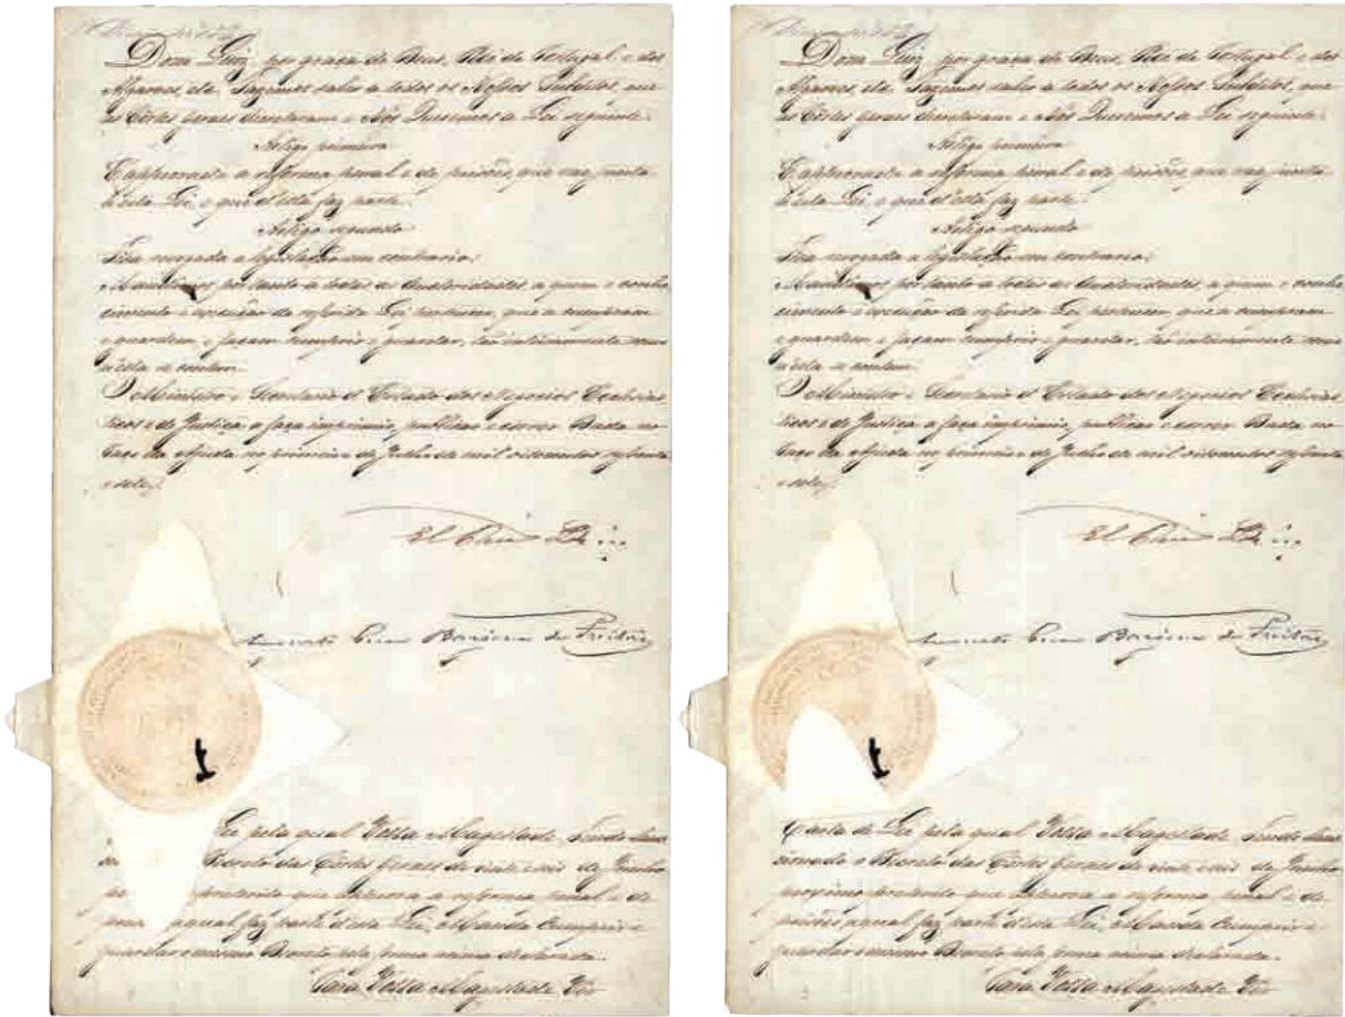 Dom Luiz por graça de Deus, Rei de Portugal e dos
Algarves, etc. Fazemos saber a todos os Nossos Subditos, que
as Côrtes geraes decretaram e Nós Queremos a Lei seguinte:
Artigo primeiro
É approvada a reforma penal e de prisões, que vae junta
a esta Lei, e que d'esta faz parte.
Artigo segundo
Fica revogada a legislação em contrario.
Mandâmos por tanto a todas as Auctoridades, a quem o conhe
cimento e execução da referida Lei pertencer, que a cumpram
e guardem e façam cumprir e guardar, tão inteiramente como
n'ella se contém.
O Ministro e Secretario d'Estado dos Negocios Ecclesias
ticos e de Justiça a faça imprimir, publicar e correr. Dada no
Paço da Ajuda no primeiro de Julho de mil oitocentos sessenta
e sete.
El Rei
Lei pela qual Vossa Magestade Tendo Sanc
Decreto das Côrtes Geraes de vinte e seis de Junho
preterito que approva a reforma penal e de
a qual faz parte d'esta Lei, Manda cumprir e
guardar o mesmo Decreto pela forma acima declarada.
Para Vossa Magestade Ver
Dom Luiz por graça de Deus, Rei de Portugal e dos
Algarves, etc. Fazemos saber a todos os Nossos Subditos, que
as Côrtes geraes decretaram e Nós Queremos a Lei seguinte:
Artigo primeiro
É approvada a reforma penal e de prisões, que vae junta
a esta Lei, e que d'esta faz parte.
Artigo segundo
Fica revogada a legislação em contrario.
Mandâmos por tanto a todas as Auctoridades, a quem o conhe
cimento e execução da referida Lei pertencer, que a cumpram
e guardem e façam cumprir e guardar, tão inteiramente como
n'ella se contém.
O Ministro e Secretario d'Estado dos Negocios Ecclesias
ticos e de Justiça a faça imprimir, publicar e correr. Dada no
Paço da Ajuda no primeiro de Julho de mil oitocentos sessenta
e sete.
El Rei
Carta de Lei pela qual Vossa Magestade Tendo Sanc
cionado o Decreto das Côrtes Geraes de vinte e seis de Junho
proximo preterito que approva a reforma penal e de
prisões a qual faz parte d'esta Lei, Manda cumprir e
guardar o mesmo Decreto pela forma acima declarada.
Para Vossa Magestade Ver